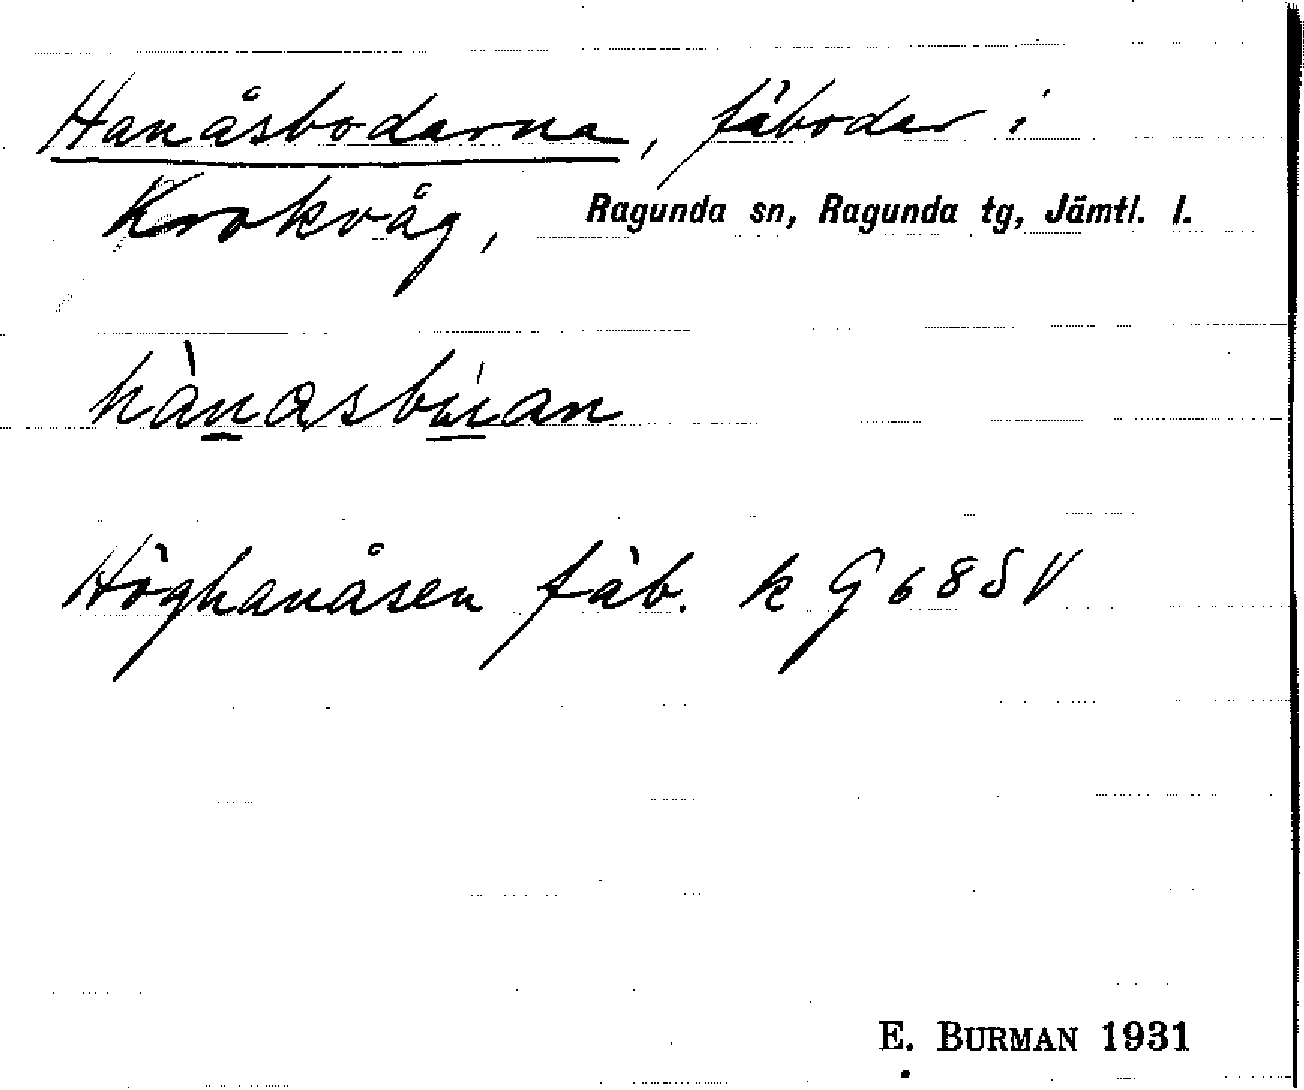 Hanåsbodarna, fäbodar i
Krokvåg, Ragunda sn, Ragunda tg, Jämtl. l.
Höghanåsen fäb. k G 68 SV
E. BURMAN 1931